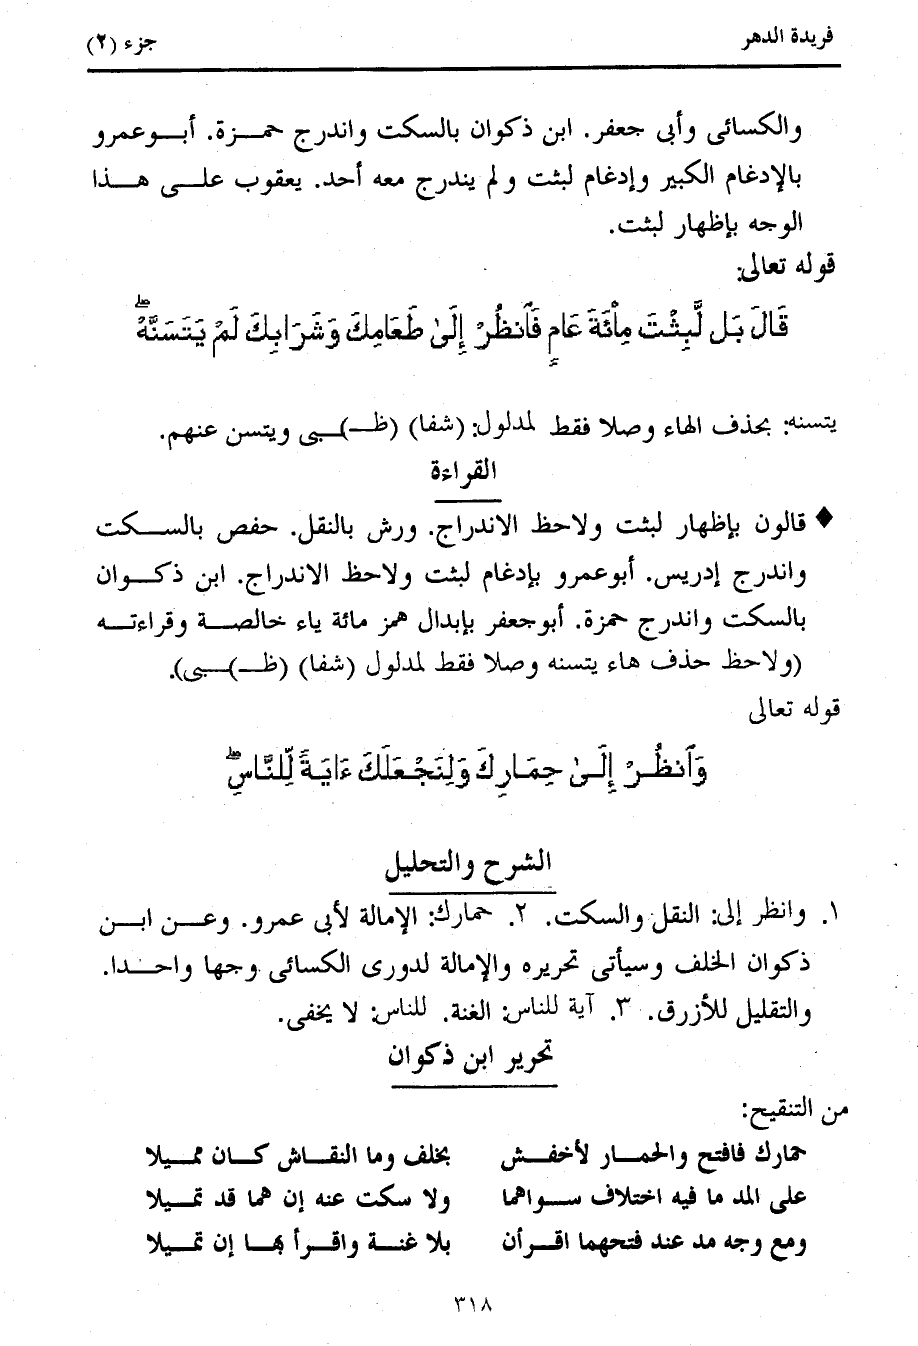 فريدة الدهر
جزء (٢)
والكسائى وأبى جعفر. ابن ذكوان بالسكت واندرج حمـــزة. أبـــوعمرو
بالإدغام الكبير وإدغام لبثت ولم يندرج معه أحد. يعقوب علـــى هـــذا
الوجه بإظهار لبثت.
قوله تعالى:
قَالَ بَل لَّبِثْتَ مِاْئَةَ عَامٍ فَٱنظُرْ إِلَىٰ طَعَامِكَ وَشَرَابِكَ لَمْ يَتَسَنَّهْۖ
يتسنه: بحذف الهاء وصلا فقط لمدلول: (شفا) (ظـــ)ــبى ويتسن عنهم.
القراءة
♦ قالون بإظهار لبثت ولاحظ الاندراج. ورش بالنقل. حفص بالســـكت
واندرج إدريس. أبوعمرو بإدغام لبثت ولاحظ الاندراج. ابن ذكـــوان
بالسكت واندرج حمزة. أبوجعفر بإبدال همز مائة ياء خالصـــة وقراءتـــه
(ولاحظ حذف هاء يتسنه وصلا فقط لمدلول (شفا) (ظـــ)ــبى).
قوله تعالى
وَٱنظُرْ إِلَىٰ حِمَارِكَ وَلِنَجْعَلَكَ ءَايَةً لِّلنَّاسِۖ
الشرح والتحليل
١. وانظر إلى: النقل والسكت. ٢. حمارك: الإمالة لأبى عمرو. وعـــن ابـــن
ذكوان الخلف وسيأتى تحريره والإمالة لدورى الكسائى وجها واحـــدا.
والتقليل للأزرق. ٣. آية للناس: الغنة. للناس: لا يخفى.
تحرير ابن ذكوان
من التنقيح:
حمارك فافتح والحمـــار لأخفـــش بخلف وما النقـــاش كـــان مميـــلا
على المد ما فيه اختلاف ســـواهما ولا سكت عنه إن هما قد تميـــلا
ومع وجه مد عند فتحهما اقـــرأن بلا غنـــة واقـــرأ بهـــا إن تميـــلا
٣١٨